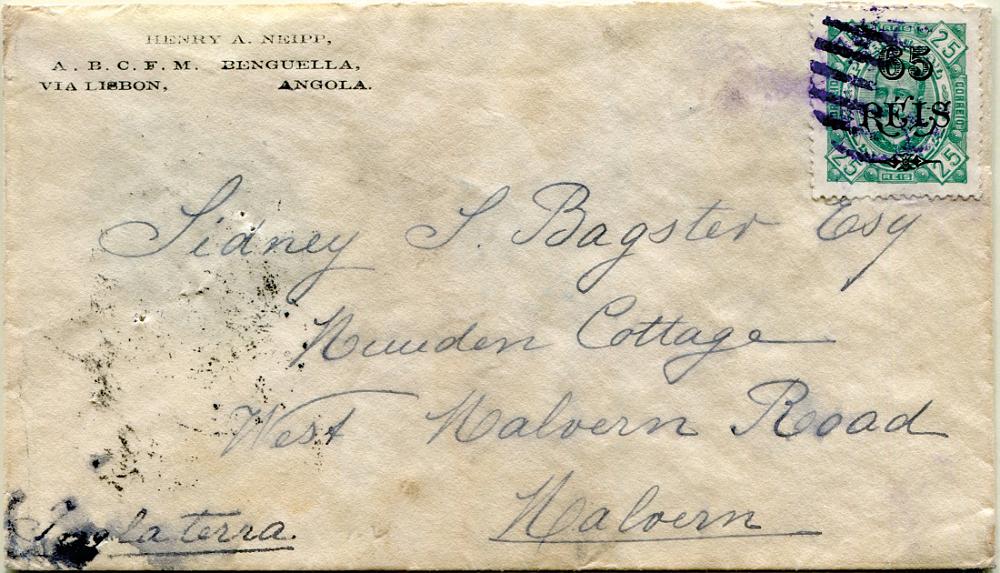 HENRY A. NEIPP,
A. B. C. F. M. BENGUELLA,
VIA LISBON, ANGOLA.
25
65
RÉIS
CORREIOS
25
25
REIS
Sidney S. Bagster Esq
Cottage
West Malvern Road
Malvern
Inglaterra.